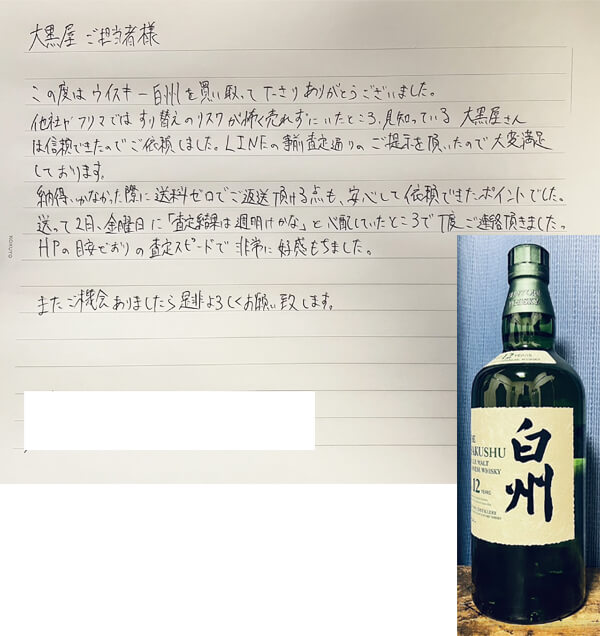 大黒屋 ご担当者様
この度はウイスキー白州を買い取って下さりありがとうございました。
他社やフリマではすり替えのリスクが怖く売れずにいたところ、見知っている 大黒屋さん
は信頼できたのでご依頼しました。LINEの事前査定通りのご提示を頂いたので大変満足
しております。
納得いかなかった際に送料ゼロでご返送頂ける点も、安心して依頼できたポイントでした。
送って2日、金曜日に「査定結果は週明けかな」と心配していたところで丁度ご連絡頂きました。
HPの目安どおりの査定スピードで非常に好感もちました。
またご機会ありましたら是非よろしくお願い致します。
12 YEARS
白州
AKUSHU
MALT
WHISKY
12 YEARS